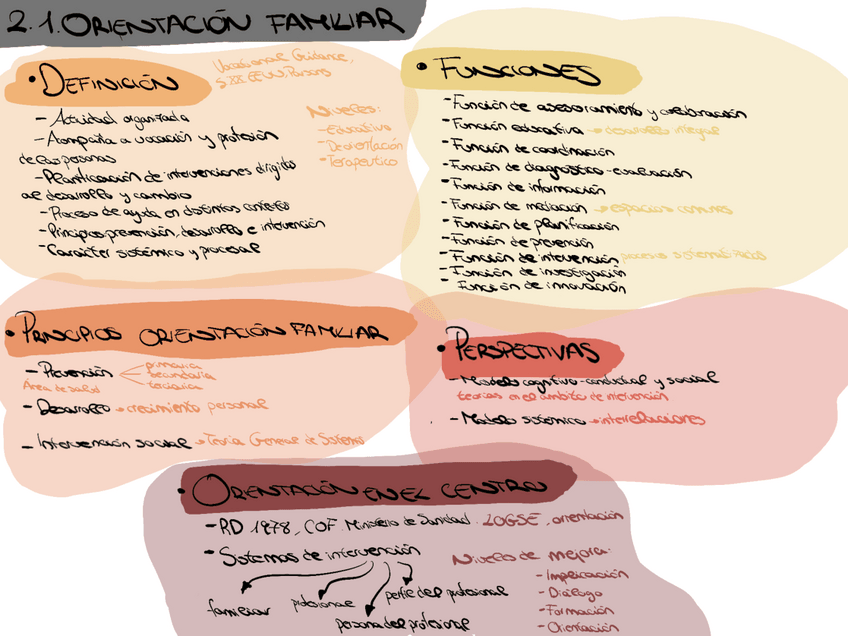 2.1. ORIENTACIÓN FAMILIAR
• DEFINICIÓN
Vocational Guidance,
SXX EEUU. Parsons
- Actividad organizada
- Acompaña a vocación y profesión
de las personas
- Planificación de intervenciones dirigido
al desarrollo y cambio
- Proceso de ayuda en distintos contextos
- Principios prevención, desarrollo e intervención
- Carácter sistémico y procesal
Niveles:
- Educativo
- De orientación
- Terapéutico
• FUNCIONES
- Función de asesoramiento y colaboración
- Función educativa → desarrollo integral
- Función de coordinación
- Función de diagnóstico-evaluación
- Función de información
- Función de mediación → espacios comunes
- Función de planificación
- Función de prevención
- Función de intervención procesos sistematizados
- Función de investigación
- Función de innovación
• PRINCIPIOS ORIENTACIÓN FAMILIAR
- Prevención
primaria
secundaria
terciaria
Área de salud
- Desarrollo → crecimiento personal
- Intervención social → Teoría General de Sistemas
• PERSPECTIVAS
- Modelo cognitivo-conductual y social
teorías en el ámbito de intervención
- Modelo sistémico → interrelaciones
• ORIENTACIÓN EN EL CENTRO
- RD 1978, COF Ministerio de Sanidad. LOGSE, orientación
- Sistemas de intervención
familiar
profesional
persona del profesional
perfil del profesional
Niveles de mejora:
- Implicación
- Diálogo
- Formación
- Orientación